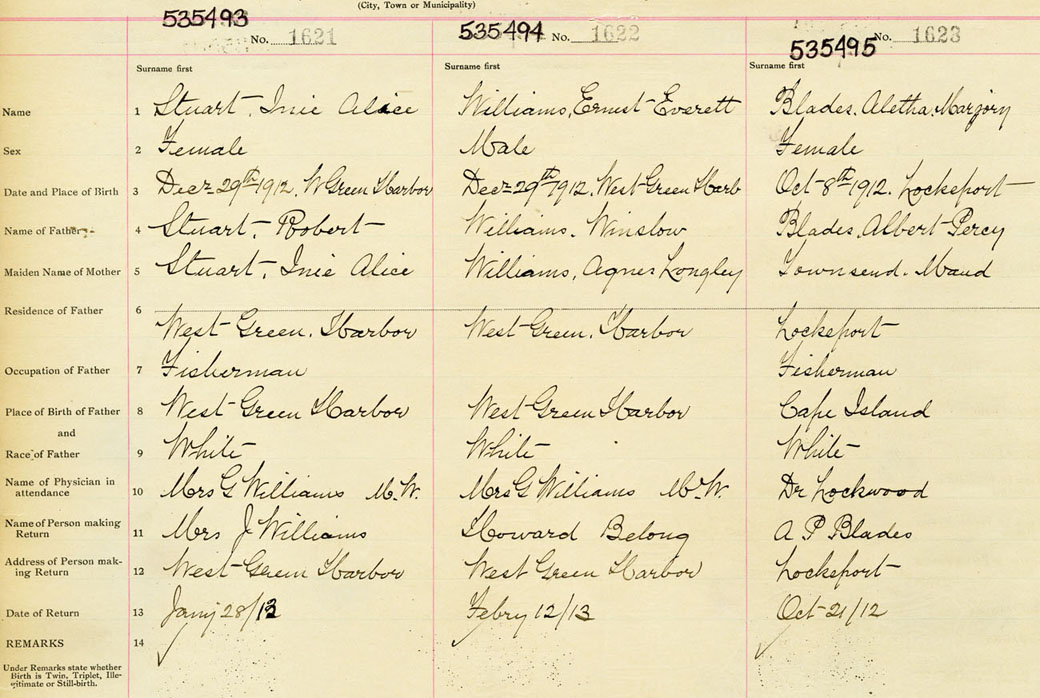 (City, Town or Municipality)
535493 No. 1621 535494 No. 1622 535495 No. 1623
Surname first Surname first Surname first
Name 1 Stuart, Inie Alice Williams, Ernest Everett Blades, Aletha Marjory
Sex 2 Female Male Female
Date and Place of Birth 3 Decr 29th 1912, W Green Harbor Decr 29th 1912, West Green Harb Oct 8th 1912. Lockeport
Name of Father 4 Stuart, Robert Williams. Winslow Blades, Albert Percy
Maiden Name of Mother 5 Stuart, Inie Alice Williams, Agnes Longley Townsend. Maud
Residence of Father 6
West Green. Harbor West Green. Harbor Lockeport
Occupation of Father 7 Fisherman Fisherman
Place of Birth of Father 8 West Green Harbor West Green Harbor Cape Island
and
Race of Father 9 White White White
Name of Physician in
attendance 10 Mrs G Williams M.W. Mrs G Williams M.W. Dr Lockwood
Name of Person making
Return 11 Mrs J Williams Howard Belong A P Blades
Address of Person mak-
ing Return 12 West Green Harbor West Green Harbor Lockeport
Date of Return 13 Jany 28/13 Febry 12/13 Oct 21/12
REMARKS 14
Under Remarks state whether
Birth is Twin, Triplet, Ille-
gitimate or Still-birth.